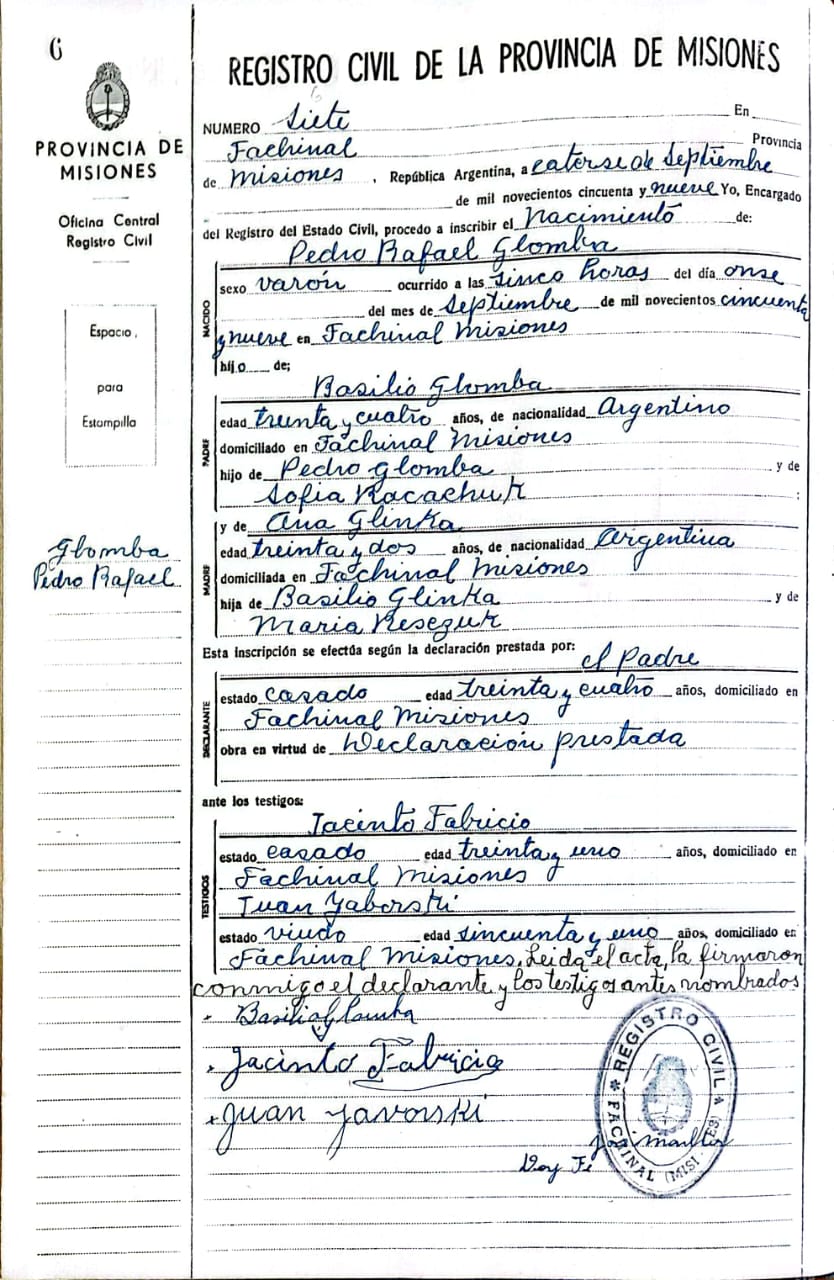 6
REGISTRO CIVIL DE LA PROVINCIA DE MISIONES
PROVINCIA DE
MISIONES
Oficina Central
Registro Civil
Espacio
para
Estampilla
Glomba
Pedro Rafael
NUMERO Siete En
Fachinal Provincia
de Misiones, República Argentina, a catorse de Septiembre
de mil novecientos cincuenta y nueve Yo, Encargado
del Registro del Estado Civil, procedo a inscribir el Nacimiento de:
Pedro Rafael Glomba
NACIDO
sexo varón ocurrido a las sinco horas del día onse
del mes de Septiembre de mil novecientos cincuenta
y nueve en Fachinal Misiones
hijo de;
Basilio Glomba
PADRE
edad treinta y cuatro años, de nacionalidad Argentino
domiciliado en Fachinal Misiones
hijo de Pedro Glomba y de
Sofia Kacachuk :
y de Ana Glinka
MADRE
edad treinta y dos años, de nacionalidad Argentina
domiciliada en Fachinal Misiones
hija de Basilio Glinka y de
Maria Kesezuk
Esta inscripción se efectúa según la declaración prestada por:
el Padre
DECLARANTE
estado casado edad treinta y cuatro años, domiciliado en
Fachinal Misiones
obra en virtud de Declaración prestada
ante los testigos:
Jacinto Fabricio
TESTIGOS
estado casado edad treinta y uno años, domiciliado en
Fachinal Misiones
Juan Yaborski
estado viudo edad sincuenta y uno años, domiciliado en
Fachinal Misiones, Leida el acta, la firmaron
conmigo el declarante y los testigos antes nombrados
Basilio Glomba
Jacinto Fabricio
Juan Yavorski
Doy Fé
REGISTRO CIVIL
FACHINAL (MISIONES)